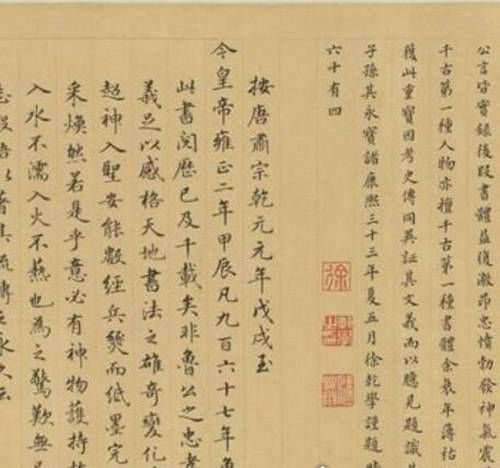 公言皆實錄後段書體益復激昂忠憤勃發神氣震
千古第一種人物亦擅千古第一種書體余衰年薄祜
獲此重寶因考史傳同異証其文義而以臆見題識
子孫其永寶諸康熙三十三年夏五月徐乾學謹題
六十有四
按唐肅宗乾元元年戊戌至
今皇帝雍正二年甲辰凡九百六十七年
此書閱歷已及千載矣非魯公之忠孝
義足以感格天地書法之雄奇變化
超神入聖安能數經兵燹而紙墨完
采煥然若是乎意必有神物護持故
入水不濡入火不爇也為之驚歎無
語以著其流傳之永久云